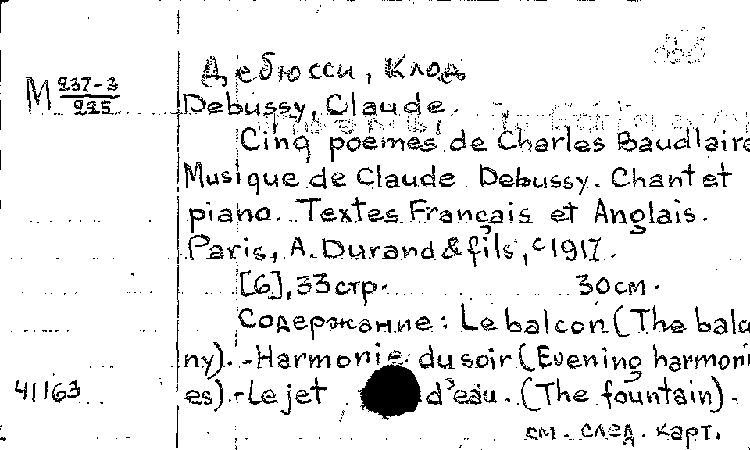 Дебюсси, Клод
М 237-3/225
Debussy, Claude.
Cinq poemes de Charles Baudlaire
Musique de Claude Debussy. Chant et
piano. Textes Français et Anglais.
Paris, A. Durand & fils, c1917.
[6], 33 стр. 30 см.
Содержание: Le balcon (The balco
ny). - Harmonie du soir (Evening harmoni
es) - Le jet d'eau. (The fountain) -
41163
см. след. карт.